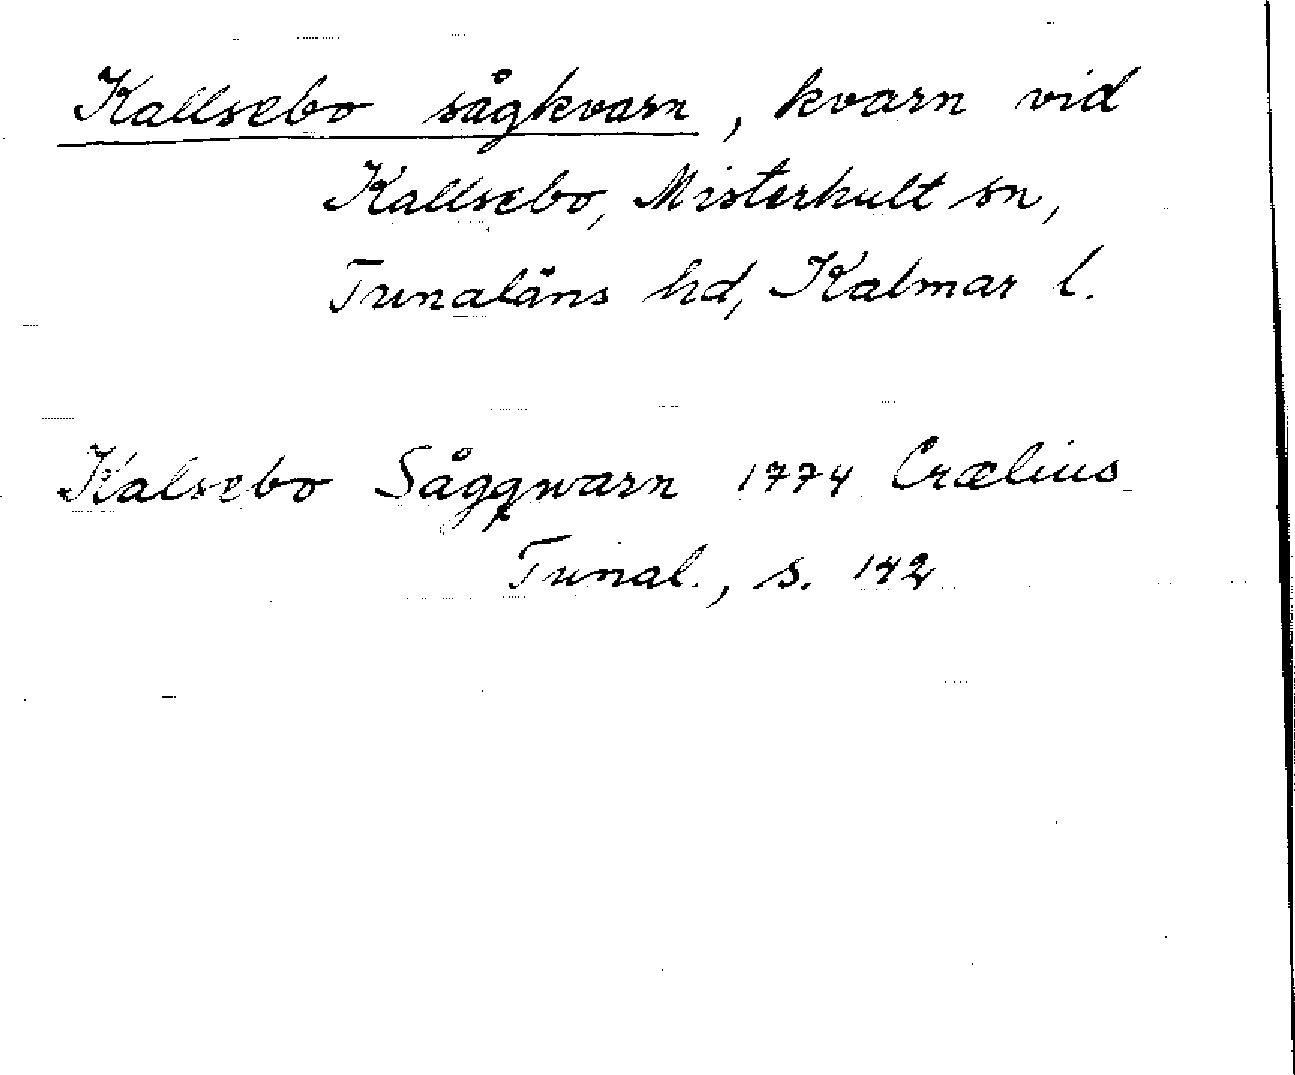 Kallsebo sågkvarn, kvarn vid
Kallsebo, Misterhult sn,
Tunaläns hd, Kalmar l.
Kalsebo Sågqwarn 1774 Crælius
Tunal., s. 142